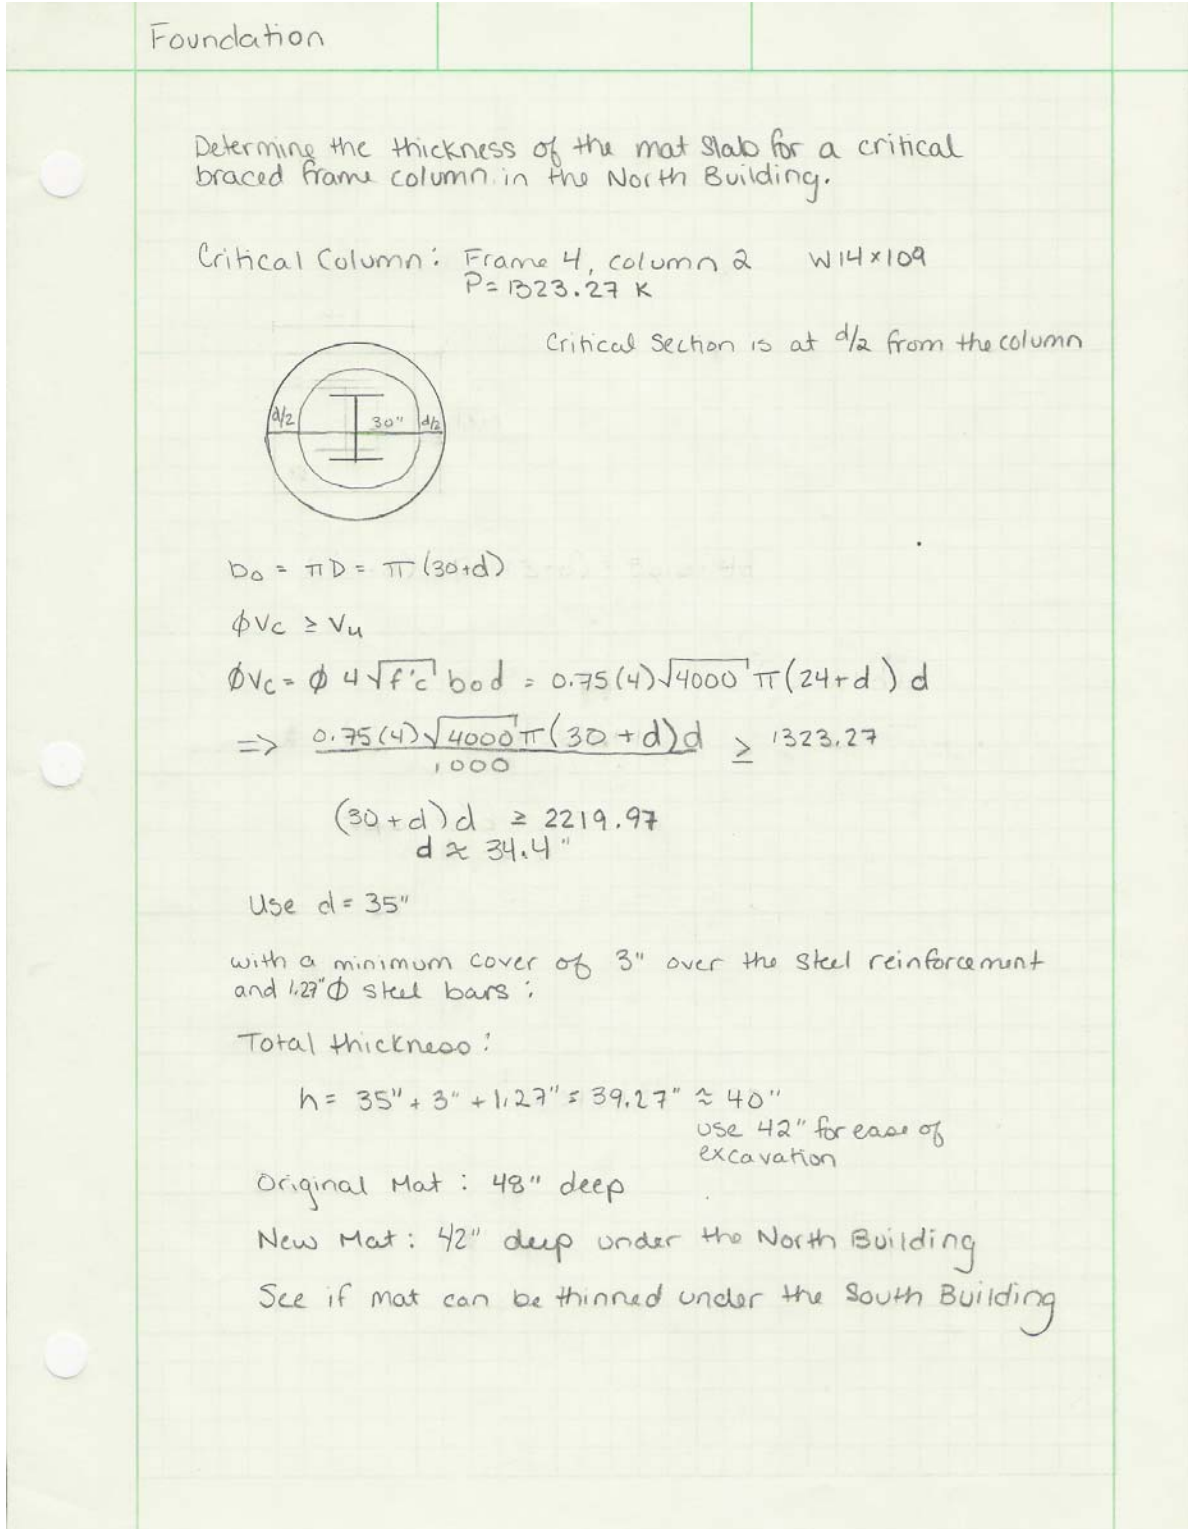 Foundation
Determine the thickness of the mat slab for a critical
braced frame column in the North Building.
Critical Column: Frame 4, column 2 W14×109
P=1323.27 K
Critical Section is at d/2 from the column
d/2 30" d/2
bo = πD = π(30+d)
φVc ≥ Vu
φVc = φ 4√f'c bod = 0.75(4)√4000 π(24+d)d
=> 0.75(4)√4000 π(30+d)d ≥ 1323.27
1000
(30+d)d ≥ 2219.97
d ≈ 34.4"
Use d = 35"
with a minimum cover of 3" over the steel reinforcement
and 1.27"φ steel bars:
Total thickness:
h = 35" + 3" + 1.27" = 39.27" ≈ 40"
use 42" for ease of
excavation
Original Mat: 48" deep
New Mat: 42" deep under the North Building
See if mat can be thinned under the South Building